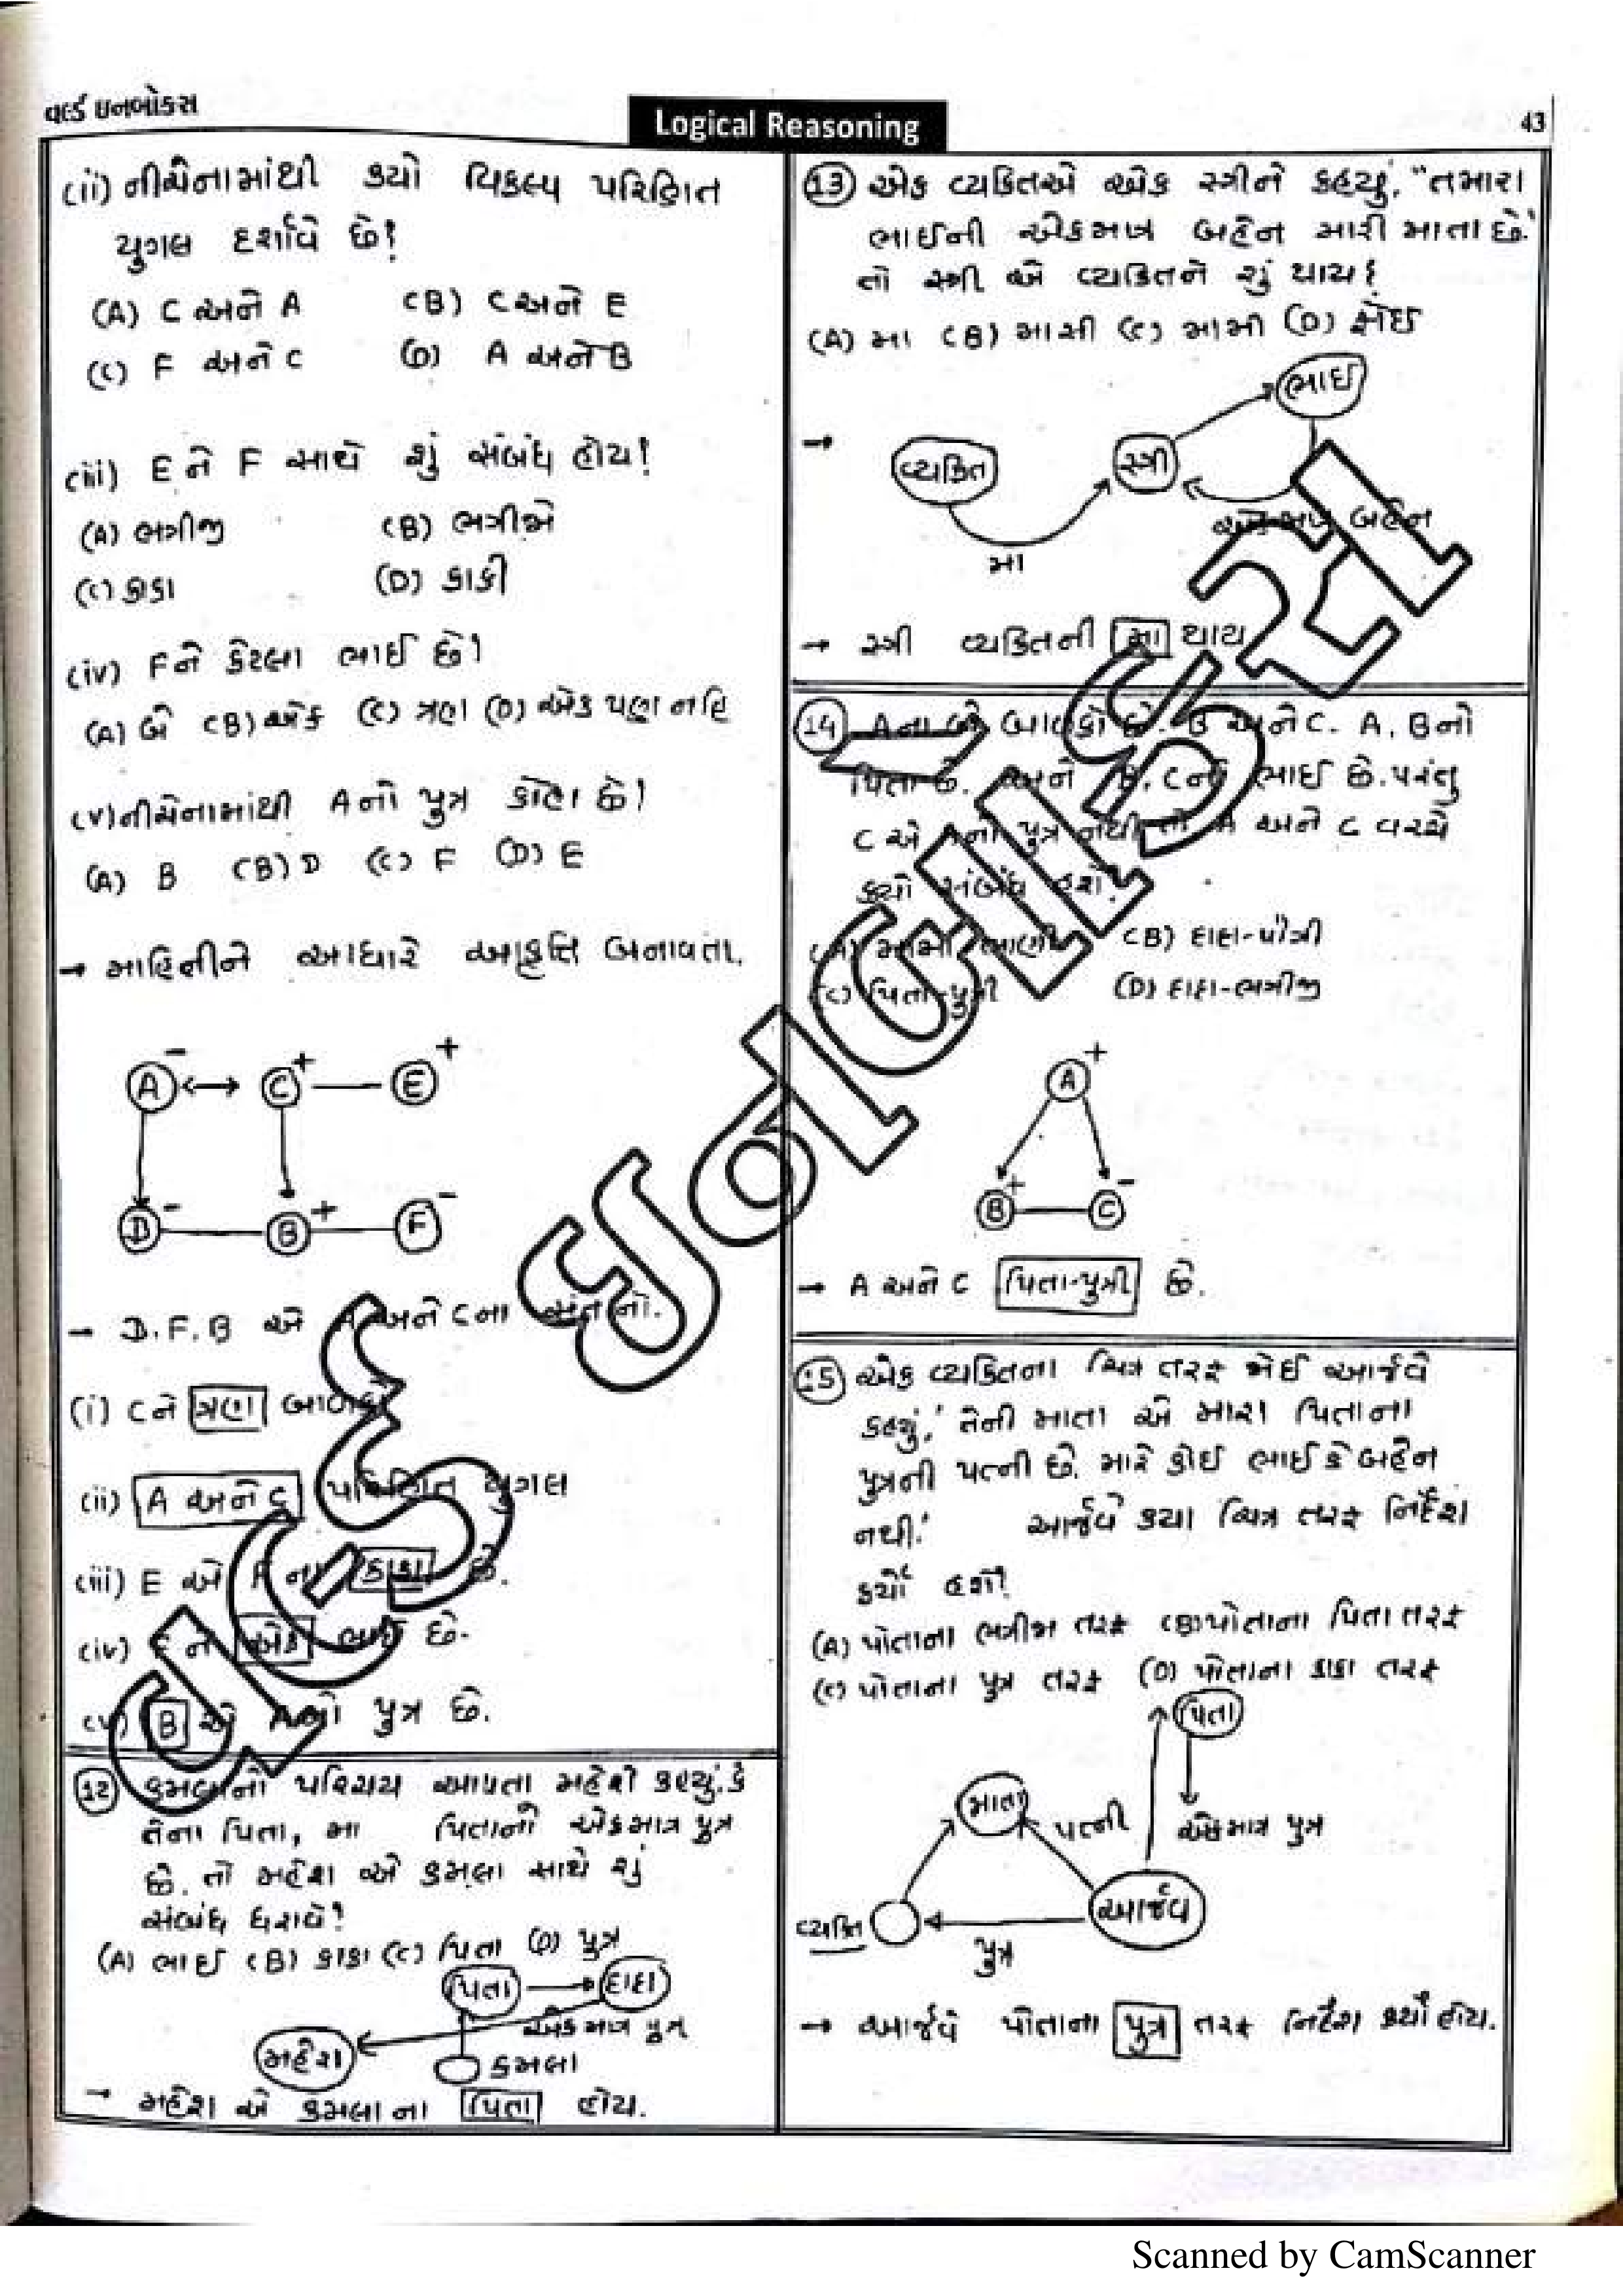 વર્લ્ડ ઇનબોક્સ
Logical Reasoning
43
(ii) નીચેનામાંથી કયો વિકલ્પ પરિણિત
યુગલ દર્શાવે છે?
(A) C અને A (B) C અને E
(C) F અને C (D) A અને B
(iii) E ને F સાથે શું સંબંધ હોય?
(A) ભત્રીજી (B) ભત્રીજો
(C) કાકા (D) કાકી
(iv) F ને કેટલા ભાઈ છે?
(A) બે (B) એક (C) ત્રણ (D) એક પણ નહિ
(v) નીચેનામાંથી A નો પુત્ર કોણ છે?
(A) B (B) D (C) F (D) E
→ માહિતીને આધારે આકૃતિ બનાવતા.
A - ↔ C + — E +
D - — B + — F -
→ D. F. B એ A અને C ના સંતાનો.
(i) C ને ત્રણ બાળકો
(ii) A અને C પરિણિત યુગલ
(iii) E એ F ના કાકા છે.
(iv) F ને એક ભાઈ છે.
(v) B એ A નો પુત્ર છે.
(12) કમલાનો પરિચય આપતા મહેશે કહ્યું, કે
તેના પિતા, મા પિતાનો એકમાત્ર પુત્ર
છે. તો મહેશ એ કમલા સાથે શું
સંબંધ ધરાવે?
(A) ભાઈ (B) કાકા (C) પિતા (D) પુત્ર
પિતા → દાદા
એકમાત્ર પુત્ર
મહેશ
કમલા
→ મહેશ એ કમલાના પિતા હોય.
(13) એક વ્યક્તિએ એક સ્ત્રીને કહ્યું, "તમારા
ભાઈની એકમાત્ર બહેન મારી માતા છે."
તો સ્ત્રી એ વ્યક્તિને શું થાય?
(A) મા (B) માસી (C) મામી (D) ફોઈ
ભાઈ
→ વ્યક્તિ સ્ત્રી
એકમાત્ર બહેન
મા
→ સ્ત્રી વ્યક્તિની મા થાય
(14) A ના બે બાળકો છે. B અને C. A, B નો
પિતા છે. અને B, C નો ભાઈ છે. પરંતુ
C એ A નો પુત્ર નથી તો A અને C વચ્ચે
કયો સંબંધ હશે?
(A) મામા ભાણી (B) દાદા-પૌત્રી
(C) પિતા-પુત્રી (D) દાદા-ભત્રીજી
A +
B + — C -
→ A અને C પિતા-પુત્રી છે.
(15) એક વ્યક્તિના ચિત્ર તરફ જોઈ આર્જવે
કહ્યું, 'તેની માતા એ મારા પિતાના
પુત્રની પત્ની છે. મારે કોઈ ભાઈ કે બહેન
નથી.' આર્જવે કયા ચિત્ર તરફ નિર્દેશ
કર્યો હશે?
(A) પોતાના ભત્રીજા તરફ (B) પોતાના પિતા તરફ
(C) પોતાના પુત્ર તરફ (D) પોતાના કાકા તરફ
પિતા
માતા પત્ની એકમાત્ર પુત્ર
વ્યક્તિ આર્જવ
પુત્ર
→ આર્જવે પોતાના પુત્ર તરફ નિર્દેશ કર્યો હોય.
Scanned by CamScanner